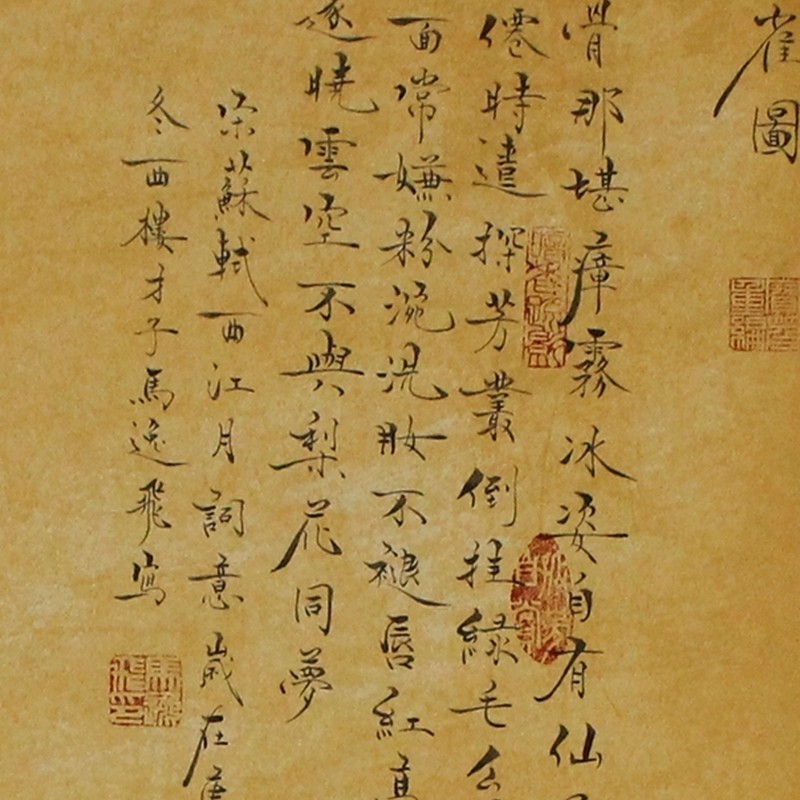 雀圖
骨那堪瘴霧冰姿自有仙
僊時遣探芳叢倒挂綠毛么
面常嫌粉涴洗妝不褪唇紅高
逐曉雲空不與梨花同夢
宋蘇軾西江月詞意歲在
冬西樓才子馬逸飛寫